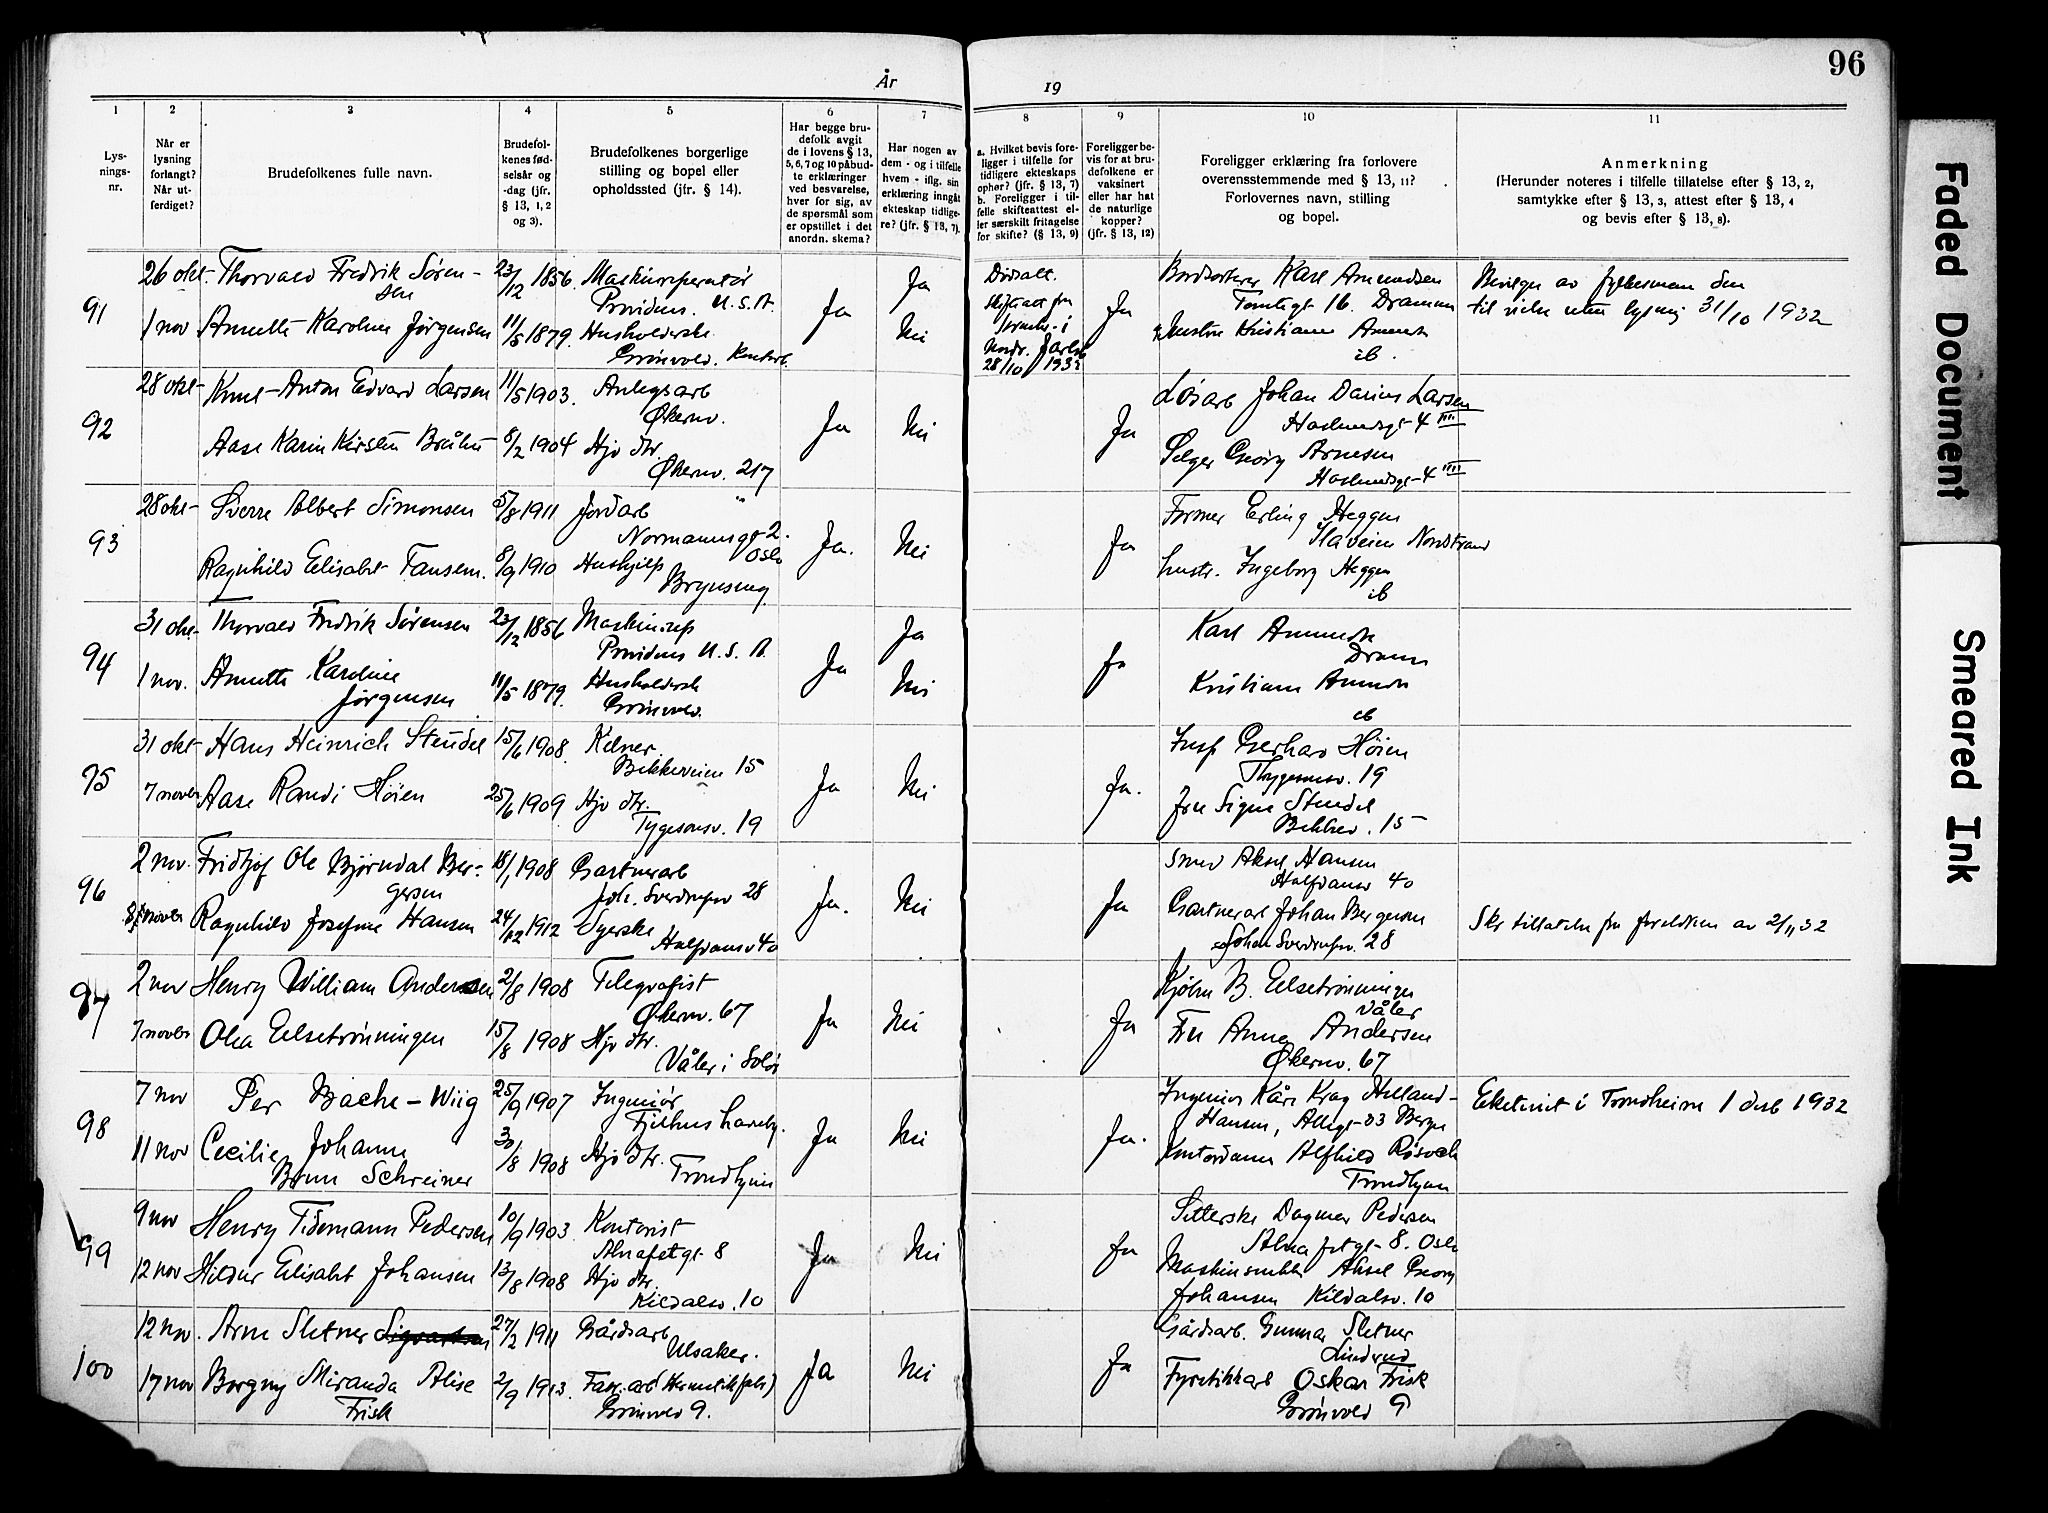 96
År 19
1 2 3 4 5 6 7 8 9 10 11
Lys-
nings-
nr.
Når er
lysning
forlangt?
Når ut-
ferdiget?
Brudefolkenes fulle navn.
Brudefol-
kenes fød-
selsår og
-dag (jfr.
§ 13, 1, 2
og 3).
Brudefolkenes borgerlige
stilling og bopel eller
opholdssted (jfr. § 14).
Har begge bru-
defolk avgit
de i lovens § 13,
5, 6, 7 og 10 påbud-
te erklæringer
ved besvarelse,
hver for sig, av
de spørsmål som
er opstillet i det
anordn. skema?
Har nogen av
dem - og i tilfelle
hvem - iflg. sin
erklæring inngåt
ekteskap tidlige-
re? (jfr. § 13, 7).
a. Hvilket bevis fore-
ligger i tilfelle for
tidligere ekteskaps
ophør? (jfr. § 13, 7)
b. Foreligger i til-
felle skifteattest el-
ler særskilt fritagelse
for skifte? (§ 13, 9)
Foreligger be-
vis for at bru-
defolkene er
vaksinert
eller har hat
de naturlige
kopper?
(jfr. § 13, 12)
Foreligger erklæring fra forlovere
overensstemmende med § 13, 11?
Forlovernes navn, stilling
og bopel.
Anmerkning
(Herunder noteres i tilfelle tillatelse efter § 13, 2,
samtykke efter § 13, 3, attest efter § 13, 4
og bevis efter § 13, 8).
91
26 okt-
1 nov
Thorvald Fredrik Søren-
sen
Annette Karoline Jørgensen
23/12 1856.
11/5 1879.
Maskinreperatør
Providens. U.S.A.
Husholderske
Grönvold.
Ja
Ja
Nei
Dødsatt.
28/10 1932
Ja
Karl Amundsen
Tomtegt 16. Drammen
Kristiane
ib.
Bevilgn av fylkesmann den
til vielse uten lysning 31/10 1932
92
28 okt-
Knut Anton Edvard Larsen
Aase Karin Kirsten
11/5 1903.
8/2 1904
Anlegsarb
Økernv.
Hjv dtr.
Økernv. 217
Ja
Nei
Ja
Løsarb Johan Darius Larsen
4 IIII
Selger Georg Arnesen
4 IIII
93
28 okt-
Sverre Albert Simonsen
Ragnhild Elisabet Fansem.
5/8 1911
8/9 1910
Jordarb
Normannsgt 2.
Oslo
Hushjelp
Brynseng
Ja.
Nei
Ja
Former Erling Heggen
Nordstrand
hustr. Ingeborg Heggen
ib
94
31 okt-
1 nov.
Thorvald Fredrik Sørensen
Annette Karoline
Jørgensen
23/12 1856
11/5 1879.
Maskinrep
Providens U.S.A.
Husholdersk
Grönvold.
Ja
Ja
Nei
Ja
Karl
Dramm
Kristiane
ib
95
31 okt-
7 novbr
Hans Heinrich Steudel
Aase Randi Høien
15/6 1908.
25/6 1909
Kelner.
Bekkeveien 15
Hjv dtr.
Tygesonsv. 19
Ja
Nei
Ja.
Insp Gerhard Høien
Thygesonsv. 19
Fru Signe Steudel
Bekkev. 15
96
2 nov.
8/ novbr
Fridtjof Ole Bjørndal Ber-
gersen
Ragnhild Josefine Hansen
18/1 1908
24/12 1912
Gartnerarb
Joh. Sverdrupsv 28
Syerske
Halfdansv 40
Ja.
Nei
Ja
Smed Aksel Hansen
Halfdansv 40
Gartnerarb Johan Bergersen
Johan Sverdrupsv. 28
Skr tillatelse fra foreldrene av 2/11 32
97
2 nov
7 novbr
Henry William Andersen
Olea Eelsetrønningen
2/8 1908
15/8 1908
Telegrafist
Økernv. 67
Hjv dtr.
Våler i Solør
Ja
Nei
Ja
B. Eelsetrønningen
Våler
Fru Anna Andersen
Økernv. 67
98
7 nov
11 nov
Per Bache-Wiig
Cecilie Johanne
Brun Schreiner
25/9 1907
30/8 1908
Ingeniør
Hjv dtr.
Trondhjem
Ja
Nei
Ja.
Ingeniør Kåre Krag Helland-
Hansen, Bergen
Kontordame Alfhild
Trondhjem
Ekteviet i Trondheim 1 desb 1932
99
9 nov
12 nov
Henry Tidemann Pedersen
Hildur Elisabet Johansen
10/9 1903.
13/8 1908
Kontorist
Alnafetgt 8
Hjv dtr.
Kildalsv. 10
Ja
Nei
Ja
Setterske Dagmar Pedersen
Alnafetgt- 8. Oslo
Aksel Georg
Johansen Kildalsv. 10
100
12 nov.
17 nov
Arne Sletner
Borgny Miranda Alise
Frisk
27/2 1911
2/9 1913.
Gårdsarb
Ulsaker.
Grönvold 9.
Ja
Nei
Ja
Gårdsarb. Gunnar Sletner
Linderud
Fyrstikkarb Oskar Frisk
Grönvold 9
Faded Document
Smeared Ink